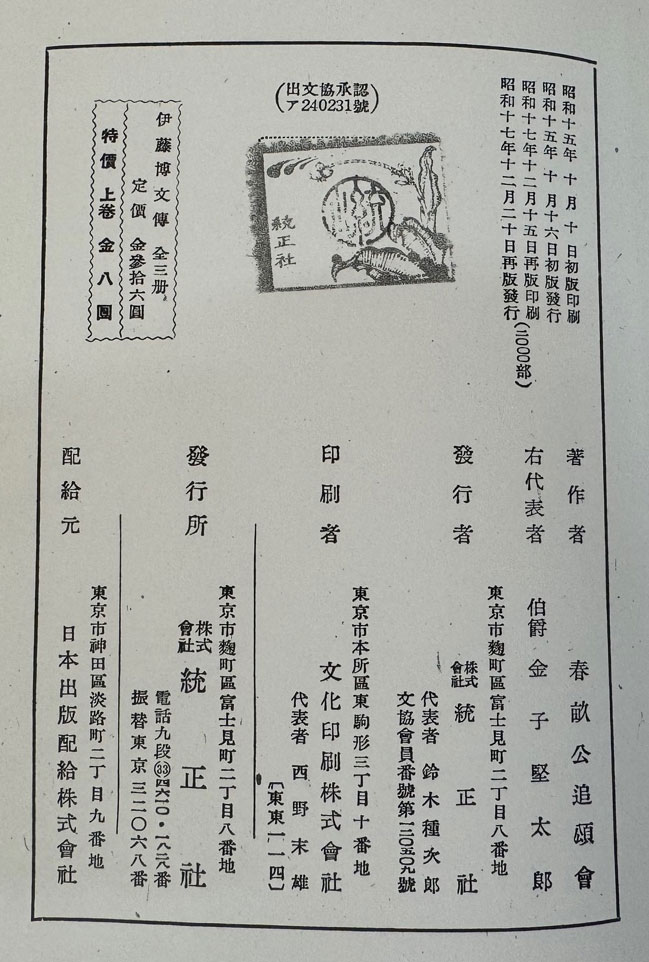 昭和十五年十月十日初版印刷
昭和十五年十月十六日初版發行
昭和十七年十二月十五日再版印刷
昭和十七年十二月二十日再版發行(二〇〇〇部)
(出文協承認
ア240231號)
統正社
伊藤博文傳 全三册
定價 金參拾六圓
特價 上卷 金八圓
著作者 春畝公追頌會
右代表者 伯爵 金子堅太郎
東京市麴町區富士見町二丁目八番地
發行者 株式會社 統正社
代表者 鈴木種次郎
文協會員番號第一二〇五〇九號
東京市本所區東駒形三丁目十番地
印刷者 文化印刷株式會社
代表者 西野末雄
〔東東一一四〕
東京市麴町區富士見町二丁目八番地
發行所 株式會社 統正社
電話九段㉝
振替東京三二〇六八番
東京市神田區淡路町二丁目九番地
配給元 日本出版配給株式會社